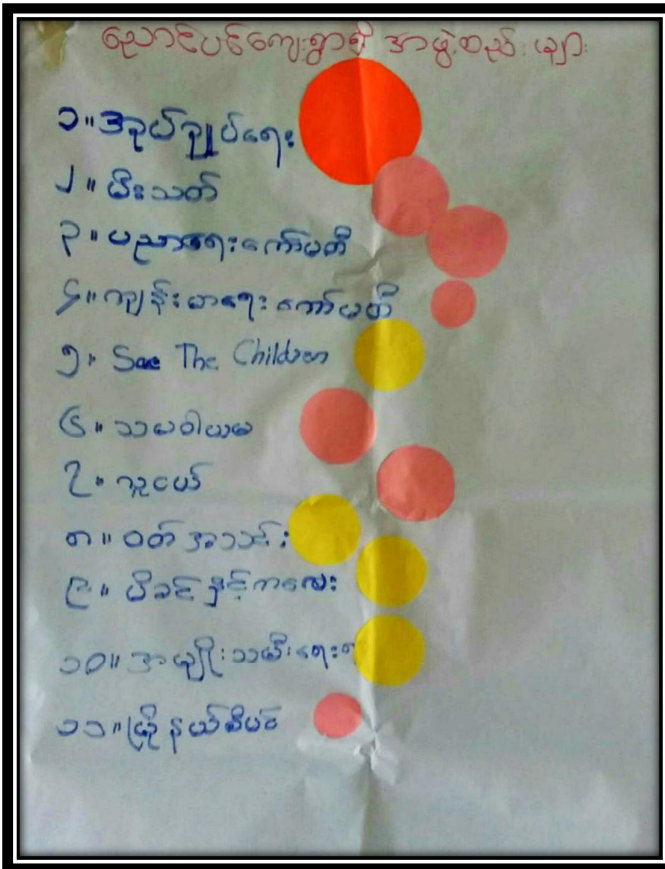 ညောင်ပင်ကျေးရွာရှိ အဖွဲ့စည်းများ
၁။ အုပ်ချုပ်ရေး
၂။ မီးသတ်
၃။ ပညာရေးကော်မတီ
၄။ ကျန်းမာရေးကော်မတီ
၅။ Sae The Children
၆။ သမဝါယမ
၇။ လူငယ်
၈။ ဝတ်အသင်း
၉။ မိခင်နှင့်ကလေး
၁၀။ အမျိုးသမီးရေးရာ
၁၁။ မြို့နယ်စီမံ